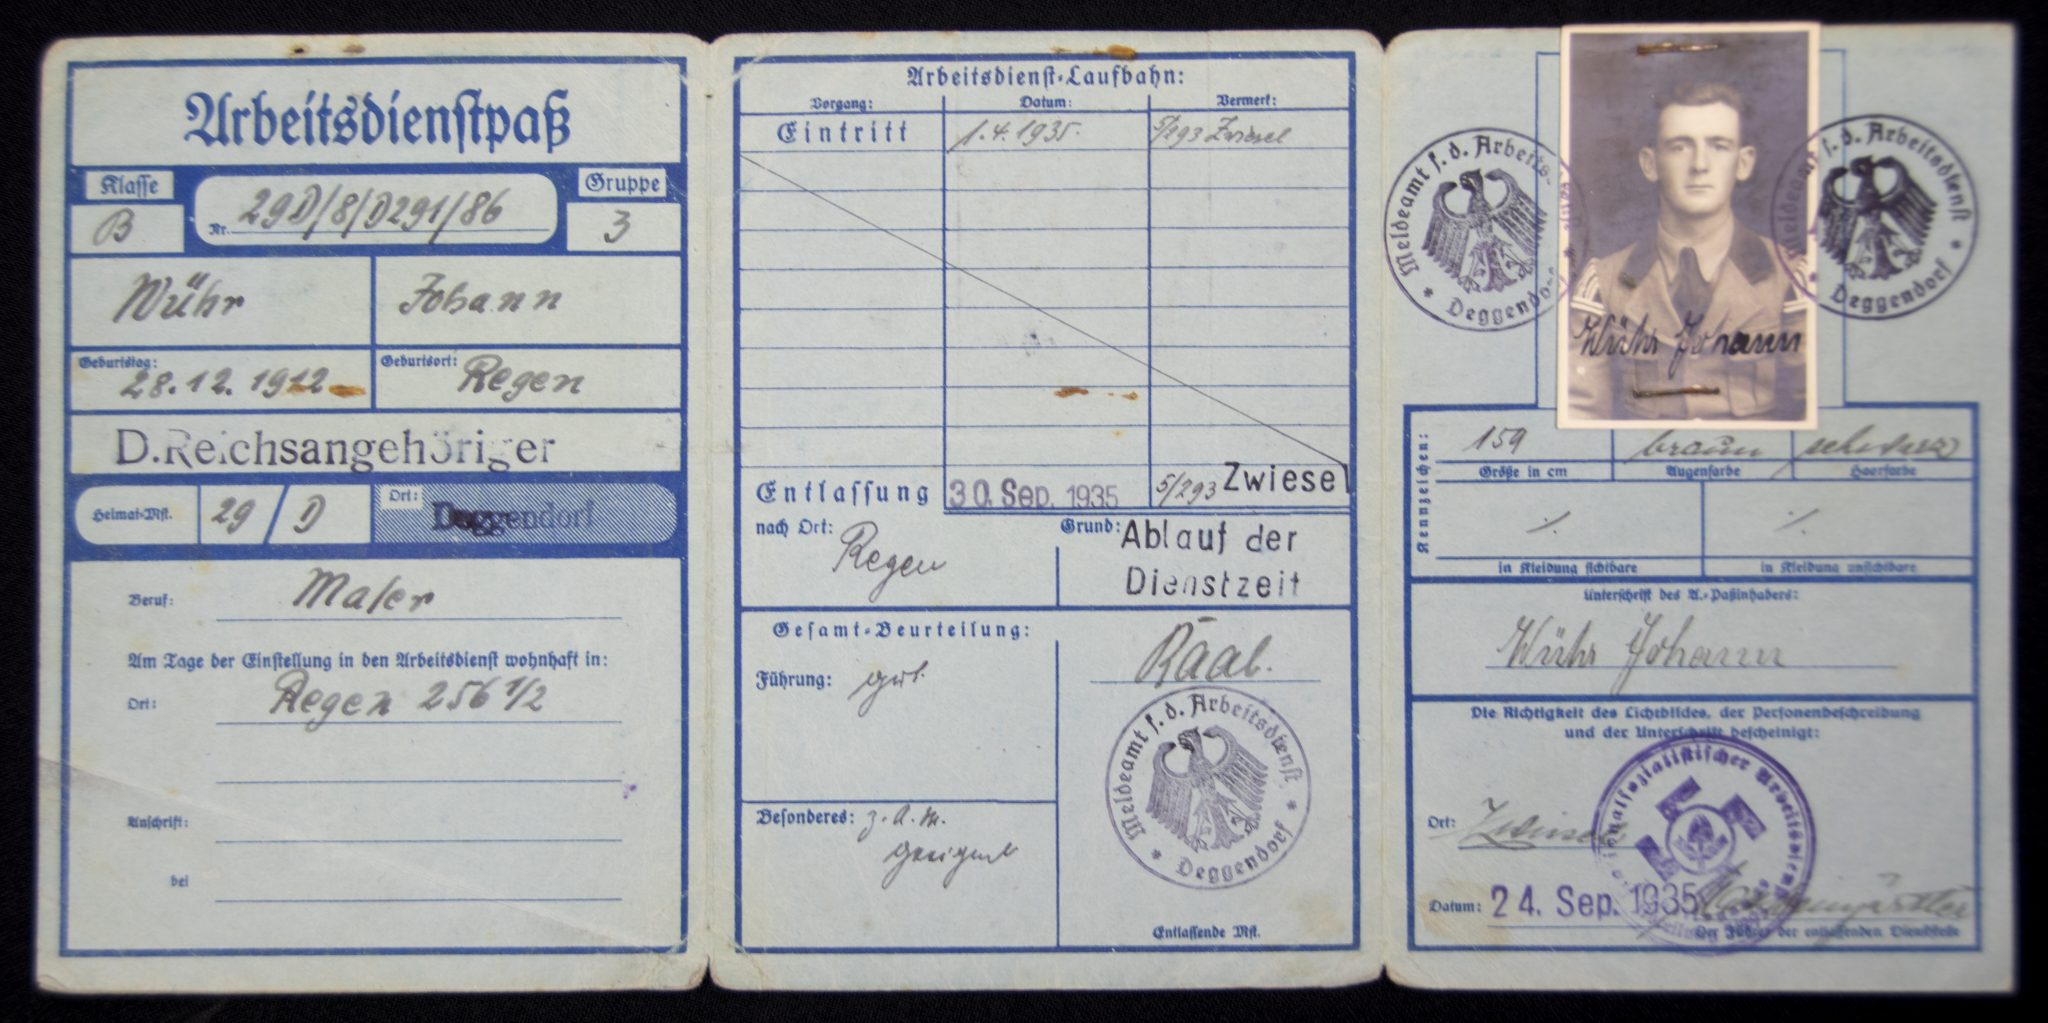 Arbeitsdienstpaß
Klasse
Gruppe
B
Nr. 29D/8/D291/86
3
Wühr
Johann
Geburtstag: 28.12.1912
Geburtsort: Regen
D.Reichsangehöriger
Heimat-Mst.
29 / D
Ort: Deggendorf
Beruf: Maler
Am Tage der Einstellung in den Arbeitsdienst wohnhaft in:
Ort: Regen 256 1/2
Anschrift:
bei
Arbeitsdienst-Laufbahn:
Vorgang: Datum: Vermerk:
Eintritt 1.4.1935. 5/293 Zwiesel
Entlassung 30. Sep. 1935 5/293 Zwiesel
nach Ort: Regen
Grund: Ablauf der
Dienstzeit
Gesamt-Beurteilung:
Führung: gut.
Raab.
Meldeamt f. d. Arbeitsdienst
* Deggendorf *
Besonderes: z. A. M.
geeignet
Entlassende Mst.
Meldeamt f. d. Arbeits-
* Deggendo
Meldeamt f. d. Arbeitsdienst
* Deggendorf *
Wühr Johann
Kennzeichen:
159 braun schwarz
Größe in cm Augenfarbe Haarfarbe
./. ./.
in Kleidung sichtbare in Kleidung unsichtbare
Unterschrift des A.-Paßinhabers:
Wühr Johann
Die Richtigkeit des Lichtbildes, der Personenbeschreibung
und der Unterschrift bescheinigt:
Ort: Zwiesel
Datum: 24. Sep. 1935
Der Führer der entlassenden Dienststelle